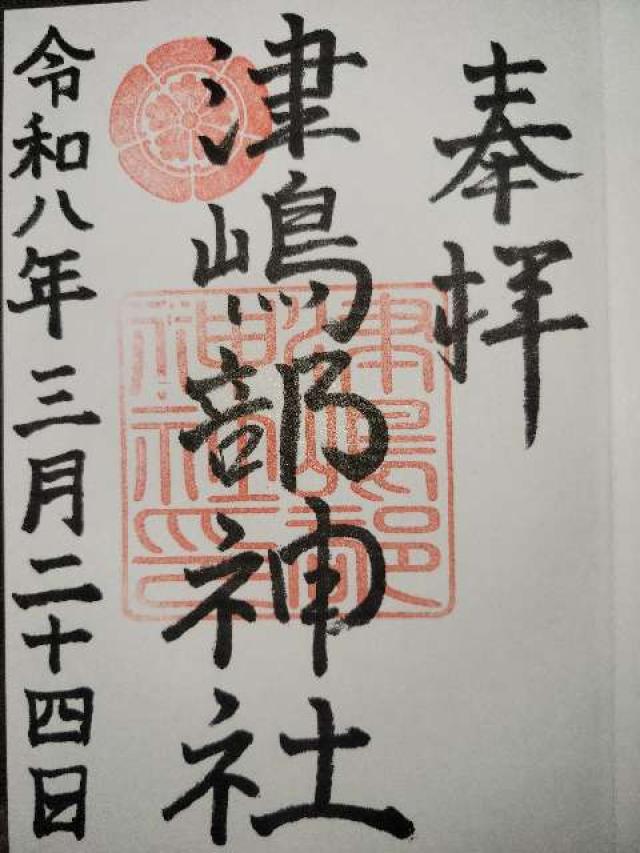 奉拝
津嶋部神社
津嶋部
神社印
令和八年三月二十四日